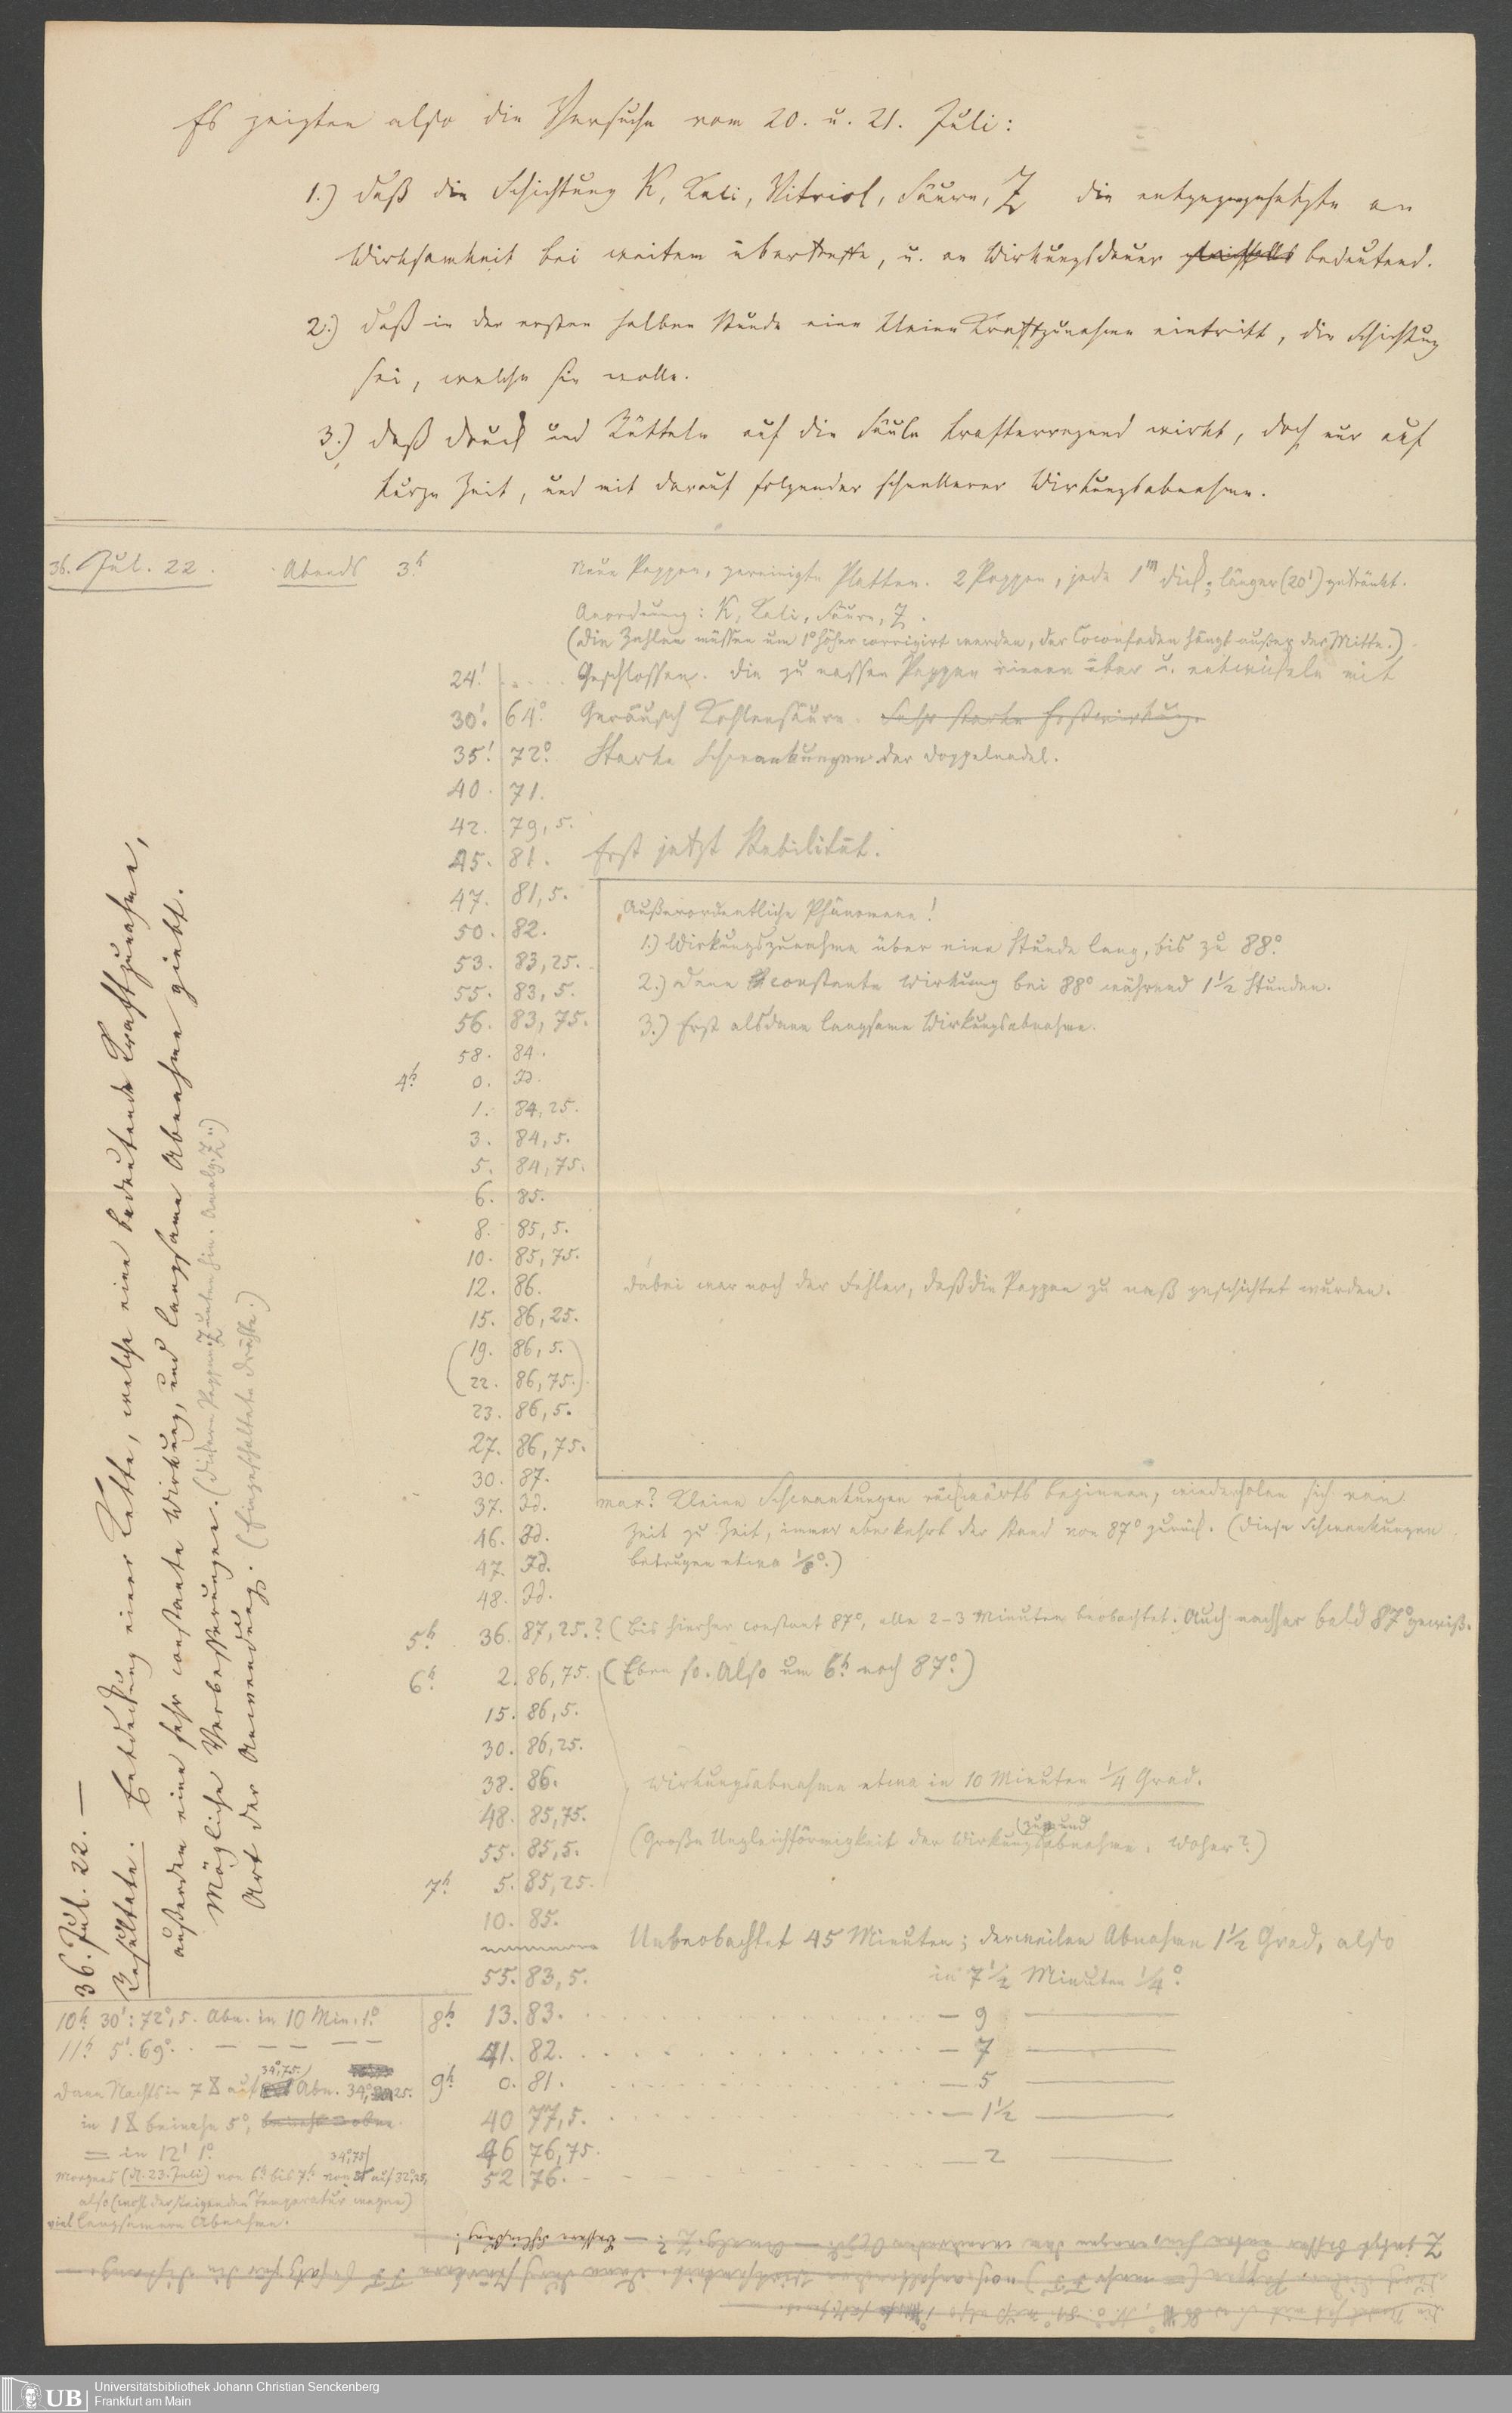 Es zeigten also die Versuche vom 20. u. 21. Juli:
1.) daß die Schichtung K, Kali, Vitriol, Säure, Z die entgegengesetzte an
Wirksamkeit bei weitem übertreffe, u. an Wirkungsdauer gleichfalls bedeutend.
2.) daß in der ersten halben Stunde eine kleine Kraftzunahme eintritt, die Schichtung
sei, welche sie wolle.
3.) daß Druck und Rütteln auf die Säule krafterregend wirkt, doch nur auf
kurze Zeit, und mit darauf folgender schnellerer Wirkungsabnahme.
36. Jul. 22. Abends 3h. Neue Pappen, gereinigte Platten. 2 Pappen, jede 1''' dick; länger (20') getränkt.
Anordnung: K, Kali, Säure, Z.
(Die Zahlen müssen um 1° höher corrigirt werden, der Coconfaden hängt außer der Mitte.)
24'. Geschlossen. Die zu nassen Pappen rinnen über u. entwickeln mit
30'. 64°. Geräusch Kohlensäure. Sehr starke
35'. 72°. Starke Schwankungen der Doppelnadel.
40. 71.
42. 79,5.
45. 81. Erst jetzt Stabilität.
47. 81,5.
Außerordentliche Phänomene!
50. 82.
1.) Wirkungszunahme über eine Stunde lang, bis zu 88°.
53. 83,25.
55. 83,5. 2.) Dann constante Wirkung bei 88° während 1 1/2 Stunden.
56. 83,75. 3.) Erst alsdann langsame Wirkungsabnahme.
58. 84.
4h. 0. Id.
1. 84,25.
3. 84,5.
5. 84,75.
6. 85.
8. 85,5.
10. 85,75.
12. 86. Dabei war noch der Fehler, daß die Pappen zu naß geschichtet wurden.
15. 86,25.
(19. 86,5.
22. 86,75.)
23. 86,5.
27. 86,75.
30. 87.
37. Id. max? Kleine Schwankungen rückwärts beginnen, wiederholen sich von
46. Id. Zeit zu Zeit, immer aber kehrt der Stand von 87° zurück. (Diese Schwankungen
47. Id. betrugen etwa 1/8°.)
48. Id.
5h. 36. 87,25.? (Bis hierher constant 87°, alle 2-3 Minuten beobachtet. Auch nachher bald 87° gewiß.
6h. 2. 86,75. (Eben so. Also um 6h noch 87°.)
15. 86,5.
30. 86,25.
38. 86. Wirkungsabnahme etwa in 10 Minuten 1/4 Grad.
48. 85,75.
(zu und
55. 85,5. (Große Ungleichförmigkeit der Wirkungsabnahme. Woher?)
7h. 5. 85,25.
10. 85.
Unbeobachtet 45 Minuten; derweilen Abnahme 1 1/2 Grad, also
55. 83,5. in 7 1/2 Minuten 1/4°.
8h. 13. 83. — 9 —
41. 82. — 7 —
9h. 0. 81. — 5 —
40 77,5. — 1 1/2 —
46 76,75. — 2 —
52 76.
36. Jul. 22. —
Resultate. Entdeckung einer Kette, welche eine bedeutende Kraftzunahme,
außerdem eine sehr constante Wirkung, und langsame Abnahme giebt.
Mögliche Verbesserungen. (Dickere Pappen, Z unten hin. Amalg. Z.)
Art der Anwendung. (Eingeschaltete Drähte.)
10h 30': 72°,5. Abn. in 10 Min. 1°.
11h 5'. 69°. — — — — —
Dann Nachts in 7 auf 34°,75. Abn. 34°,25.
in 1 beinahe 5°,
= in 12' 1°.
Morgens (d. 23. Juli) von 6h bis 7h von 34°,75 auf 32°,25,
also (wohl der steigenden Temperatur wegen)
viel langsamere Abnahme.
UB Universitätsbibliothek Johann Christian Senckenberg
Frankfurt am Main